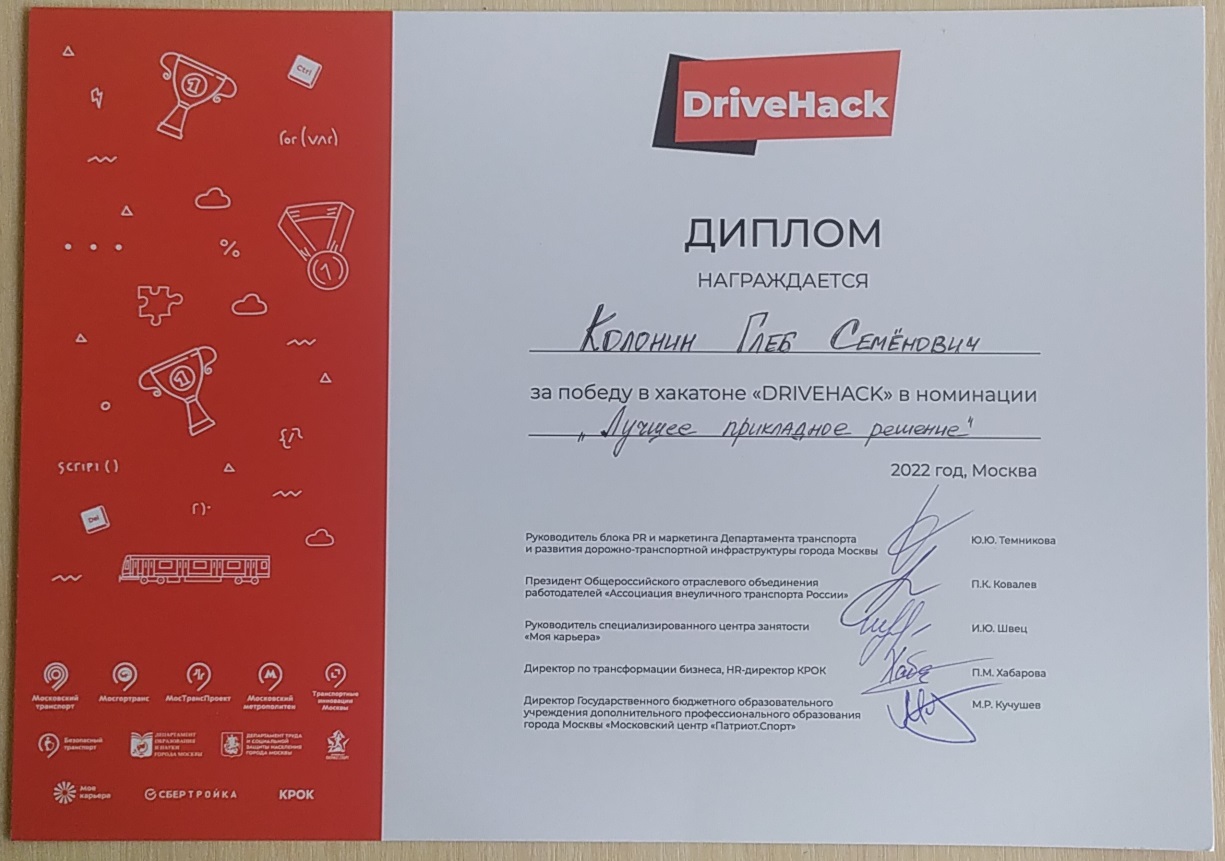 Ctrl
for(var)
%
1
1
1
{/}
script()
Del
Московский
транспорт
Мосгортранс
МосТрансПроект
Московский
метрополитен
Транспортные
инновации
Москвы
Безопасный
транспорт
ДЕПАРТАМЕНТ
ОБРАЗОВАНИЯ
И НАУКИ
ГОРОДА МОСКВЫ
ДЕПАРТАМЕНТ ТРУДА
И СОЦИАЛЬНОЙ
ЗАЩИТЫ НАСЕЛЕНИЯ
ГОРОДА МОСКВЫ
моя
карьера
СБЕРТРОЙКА
КРОК
DriveHack
ДИПЛОМ
НАГРАЖДАЕТСЯ
Колонин Глеб Семёнович
за победу в хакатоне «DRIVEHACK» в номинации
„Лучшее прикладное решение“
2022 год, Москва
Руководитель блока PR и маркетинга Департамента транспорта
и развития дорожно-транспортной инфраструктуры города Москвы
Ю.Ю. Темникова
Президент Общероссийского отраслевого объединения
работодателей «Ассоциация внеуличного транспорта России»
П.К. Ковалев
Руководитель специализированного центра занятости
«Моя карьера»
И.Ю. Швец
Директор по трансформации бизнеса, HR-директор КРОК
П.М. Хабарова
Директор Государственного бюджетного образовательного
учреждения дополнительного профессионального образования
города Москвы «Московский центр «Патриот.Спорт»
М.Р. Кучушев